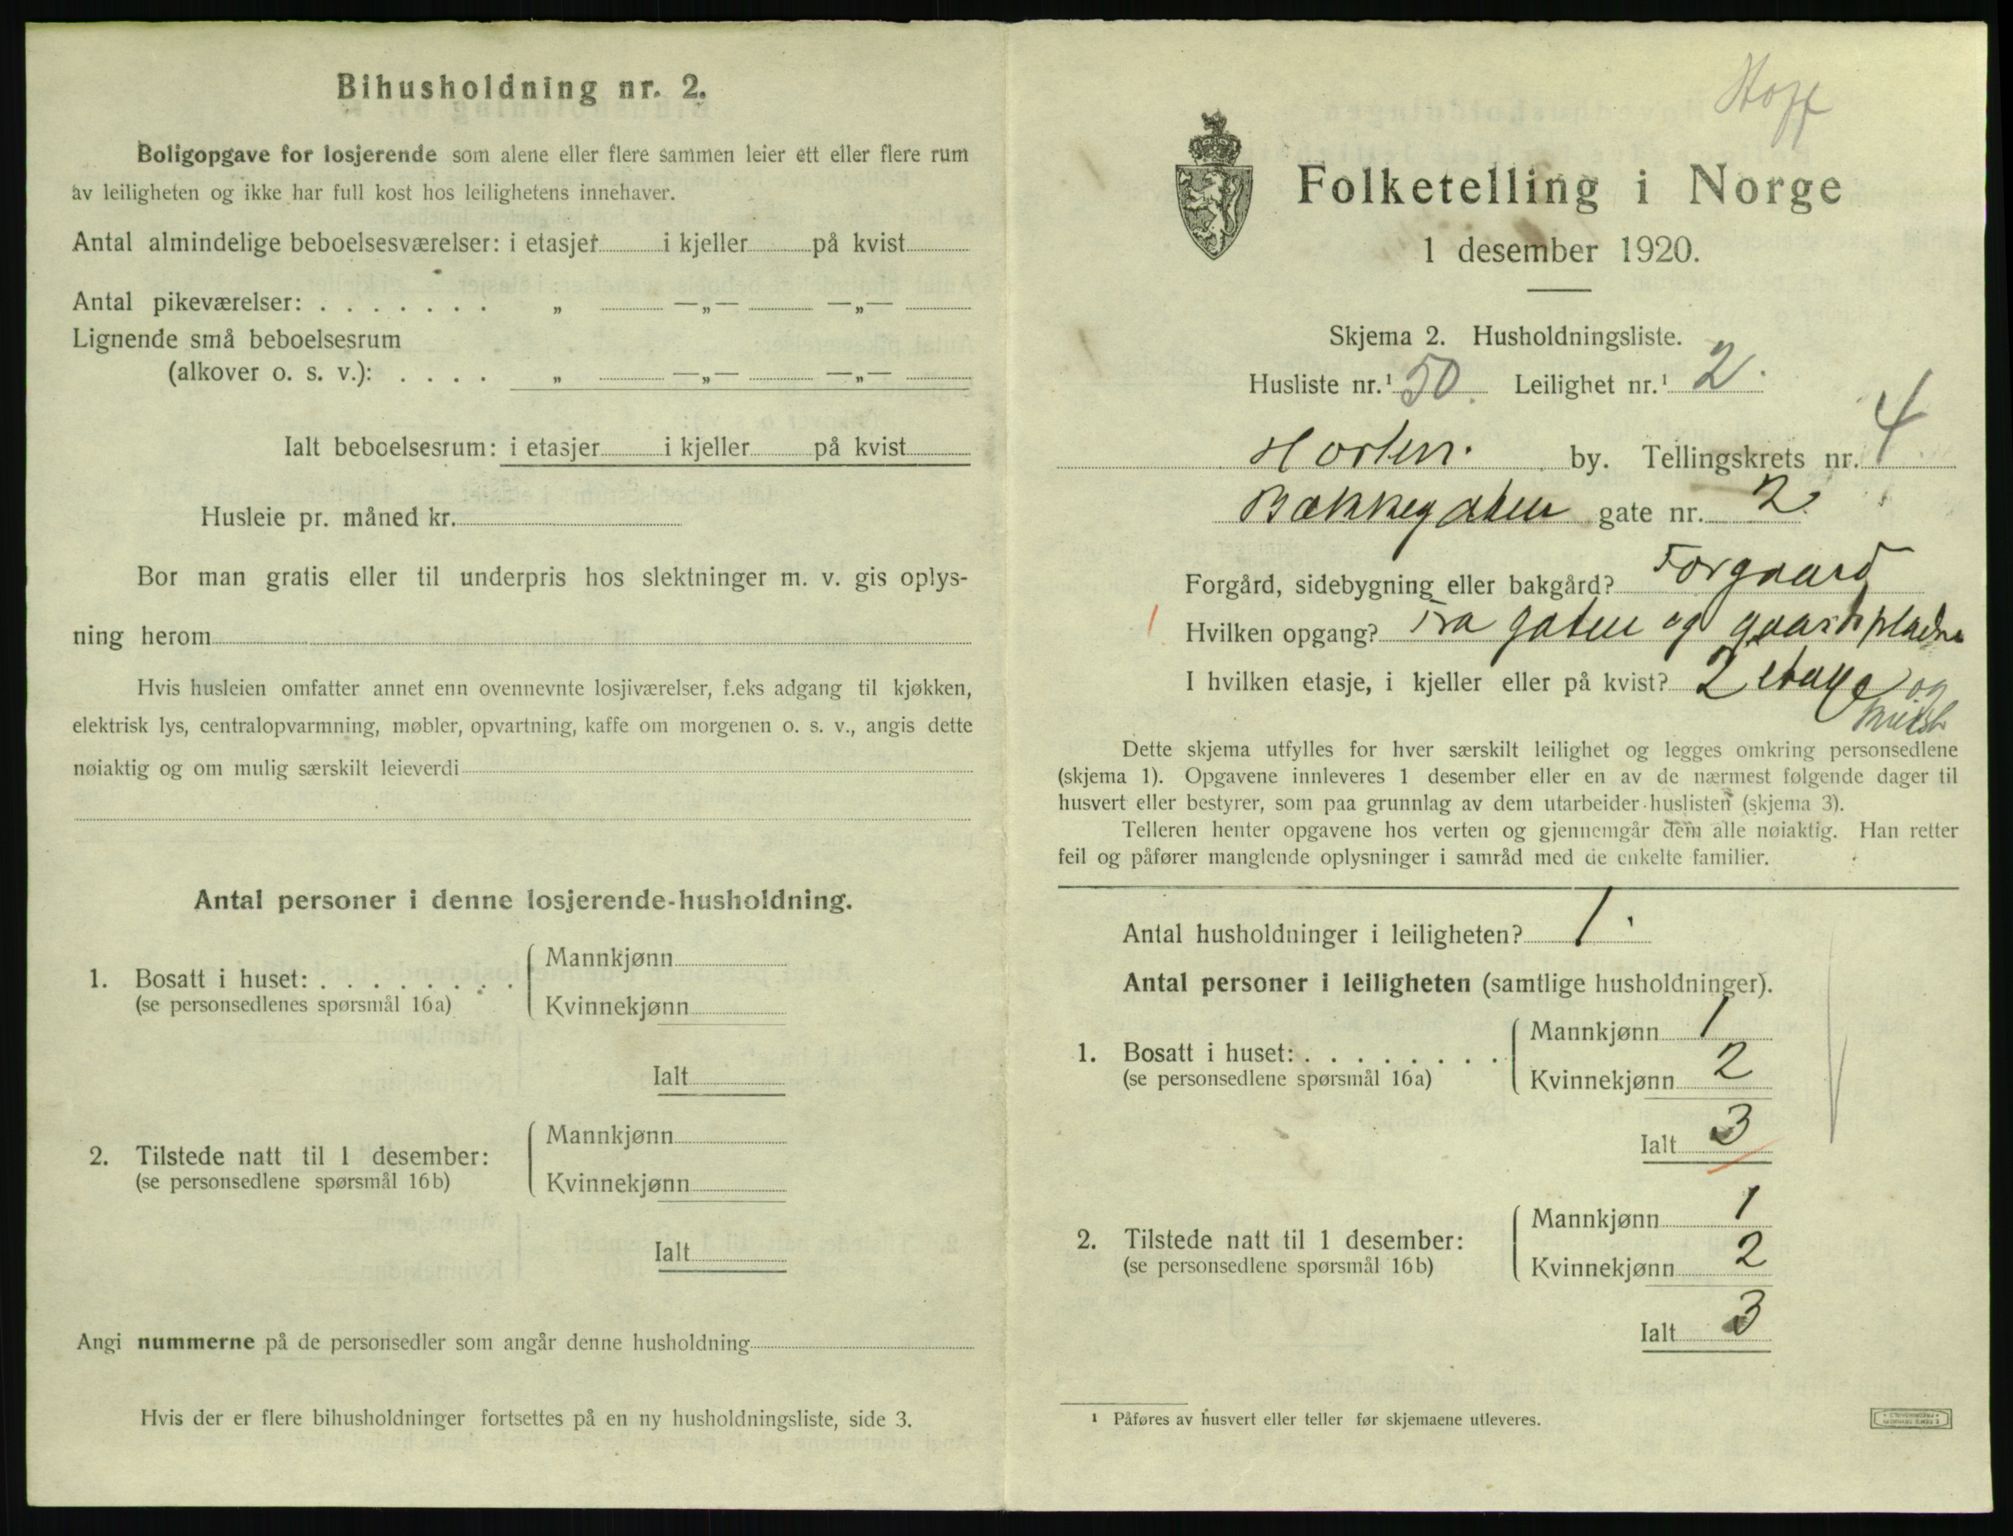 Bihusholdning nr. 2.
Boligopgave for losjerende som alene eller flere sammen leier ett eller flere rum
av leiligheten og ikke har full kost hos leilighetens innehaver.
Antal almindelige beboelsesværelser: i etasjer i kjeller på kvist
Antal pikeværelser: . . . . . . . „ —„— —„—
Lignende små beboelsesrum
(alkover o. s. v.): . . . . „ —„— —„—
Ialt beboelsesrum: i etasjer i kjeller på kvist
Husleie pr. måned kr.
Bor man gratis eller til underpris hos slektninger m. v. gis oplys-
ning herom
Hvis husleien omfatter annet enn ovennevnte losjiværelser, f.eks adgang til kjøkken,
elektrisk lys, centralopvarmning, møbler, opvartning, kaffe om morgenen o. s. v., angis dette
nøiaktig og om mulig særskilt leieverdi
Antal personer i denne losjerende-husholdning.
1. Bosatt i huset: . . . . . . . .
(se personsedlenes spørsmål 16a)
Mannkjønn
Kvinnekjønn
Ialt
2. Tilstede natt til 1 desember:
(se personsedlene spørsmål 16b)
Mannkjønn
Kvinnekjønn
Ialt
Angi nummerne på de personsedler som angår denne husholdning
Hvis der er flere bihusholdninger fortsettes på en ny husholdningsliste, side 3.
Hoff
Folketelling i Norge
1 desember 1920.
Skjema 2. Husholdningsliste.
Husliste nr.¹ 50. Leilighet nr.¹ 2.
Horten. by. Tellingskrets nr. 4
Bækkegaten gate nr. 2
Forgård, sidebygning eller bakgård? Forgaard
Hvilken opgang? Fra gaten og gaardspladsen
I hvilken etasje, i kjeller eller på kvist? 2 etage og
Dette skjema utfylles for hver særskilt leilighet og legges omkring personsedlene
(skjema 1). Opgavene innleveres 1 desember eller en av de nærmest følgende dager til
husvert eller bestyrer, som paa grunnlag av dem utarbeider huslisten (skjema 3).
Telleren henter opgavene hos verten og gjennemgår dem alle nøiaktig. Han retter
feil og påfører manglende oplysninger i samråd med de enkelte familier.
Antal husholdninger i leiligheten? 1.
Antal personer i leiligheten (samtlige husholdninger).
1. Bosatt i huset: . . . . . . . .
(se personsedlene spørsmål 16a)
Mannkjønn 1
Kvinnekjønn 2
Ialt 3
2. Tilstede natt til 1 desember:
(se personsedlene spørsmål 16b)
Mannkjønn 1
Kvinnekjønn 2
Ialt 3
¹ Påføres av husvert eller teller før skjemaene utleveres.